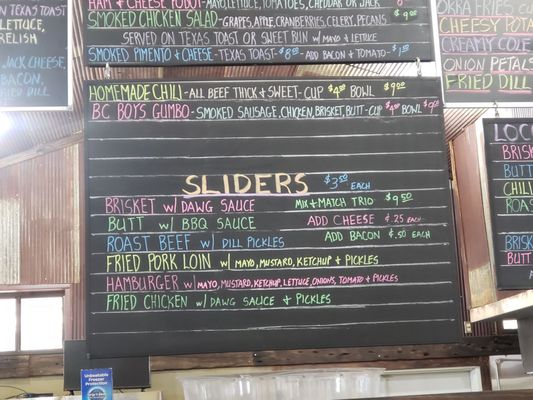 ON TEXAS TOAST
LETTUCE
RELISH
JACK CHEESE
BACON,
FRIED DILL
HAM & CHEESE
MAYO, LETTUCE, TOMATOES, CHEDDAR OR JACK
SMOKED CHICKEN SALAD - GRAPES, APPLE, CRANBERRIES, CELERY, PECANS $9.00
SERVED ON TEXAS TOAST OR SWEET BUN W/ MAYO & LETTUCE
SMOKED PIMENTO & CHEESE - TEXAS TOAST - $8.00 ADD BACON & TOMATO - $1.50
HOMEMADE CHILI - ALL BEEF THICK & SWEET - CUP $4.50 BOWL $9.00
BC BOYS GUMBO - SMOKED SAUSAGE, CHICKEN, BRISKET, BUTT - CUP $4.50 BOWL $9.00
SLIDERS $3.50 EACH
BRISKET W/ DAWG SAUCE MIX & MATCH TRIO $9.50
BUTT W/ BBQ SAUCE ADD CHEESE $.25 EACH
ROAST BEEF W/ DILL PICKLES ADD BACON $.50 EACH
FRIED PORK LOIN W/ MAYO, MUSTARD, KETCHUP & PICKLES
HAMBURGER W/ MAYO, MUSTARD, KETCHUP, LETTUCE, ONIONS, TOMATO & PICKLES
FRIED CHICKEN W/ DAWG SAUCE & PICKLES
OKRA FRIES
CHEESY POTA
CREAMY COLE
ONION PETALS
FRIED DILL
LOC
BRISK
BUTT
CHILI
ROAS
BRISK
BUTT
Unbeatable
Freeze Protection